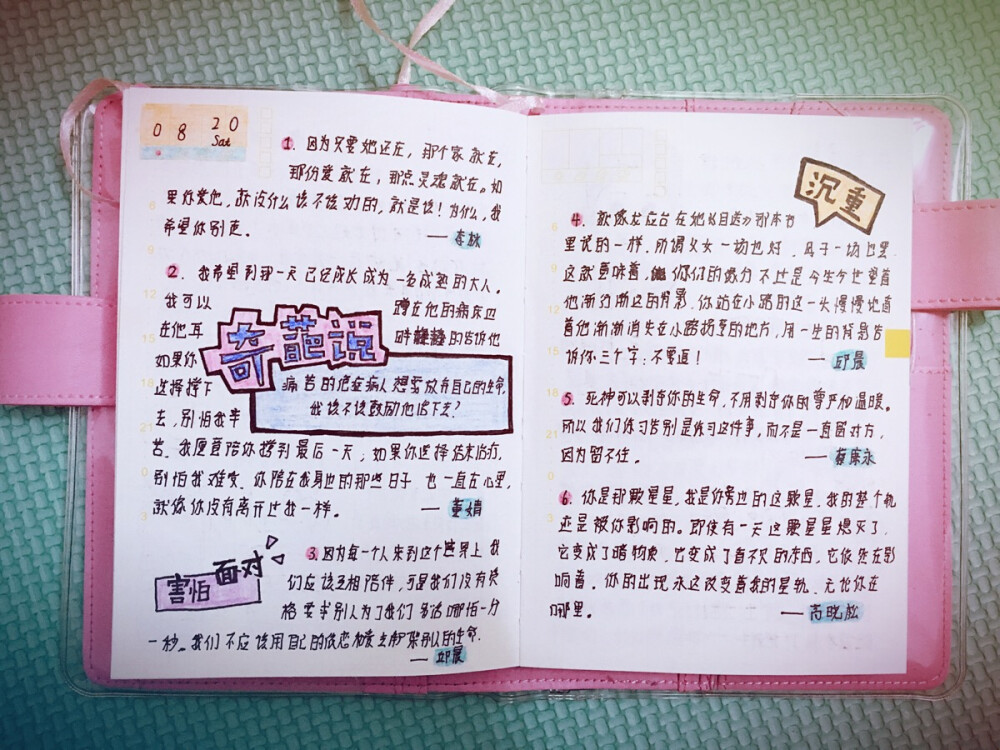 08 20
Sat
1. 因为只要她还在，那个家就在，
那份爱就在，那点灵魂就在。如
果你爱他，就没什么该不该劝的，就是该！为什么，我
希望你别走。
——李林
2. 我希望到那一天已经成长成为一名成熟的大人。
我可以
蹲在他的病床边
在他耳
时静静的告诉他
如果你
选择撑下
奇葩说
痛苦的癌症病人想要放弃自己的生命，
我该不该鼓励他活下去？
去，别怕我辛
苦。我愿意陪你撑到最后一天；如果你选择结束治疗，
别怕我难受。你陪在我身边的那些日子 也一直在心里，
就像你没有离开过我一样。
——董婧
害怕 面对
3. 因为每一个人来到这个世界上 我
们应该互相陪伴，可是我们没有资
格要求别人为了我们 多活哪怕一分
一秒。我们不应该用自己的依恋和爱去绑架别人的生命.
——邱晨
沉重
4. 就像龙应台在她《目送》那本书
里说的一样，所谓父女一场也好，母子一场也罢
这就意味着，你们的缘分不过是今生今世望着
他渐行渐远的背影。你站在小路的这一头慢慢地看
着他渐渐消失在小路拐弯的地方，用一生的背影告
诉你三个字：不要追！
——邱晨
5. 死神可以剥夺你的生命，不用剥夺你的尊严和温暖。
所以我们练习告别是练习这件事，而不是一直留对方，
因为留不住。
——蔡康永
6. 你是那颗星星，我是你旁边的这颗星，我的整个轨
迹是被你影响的。即使有一天这颗星星熄灭了，
它变成了暗物质，它变成了看不见的东西，它依然在影
响着。你的出现永远改变着我的星轨，无论你在
哪里。
——芮晓松